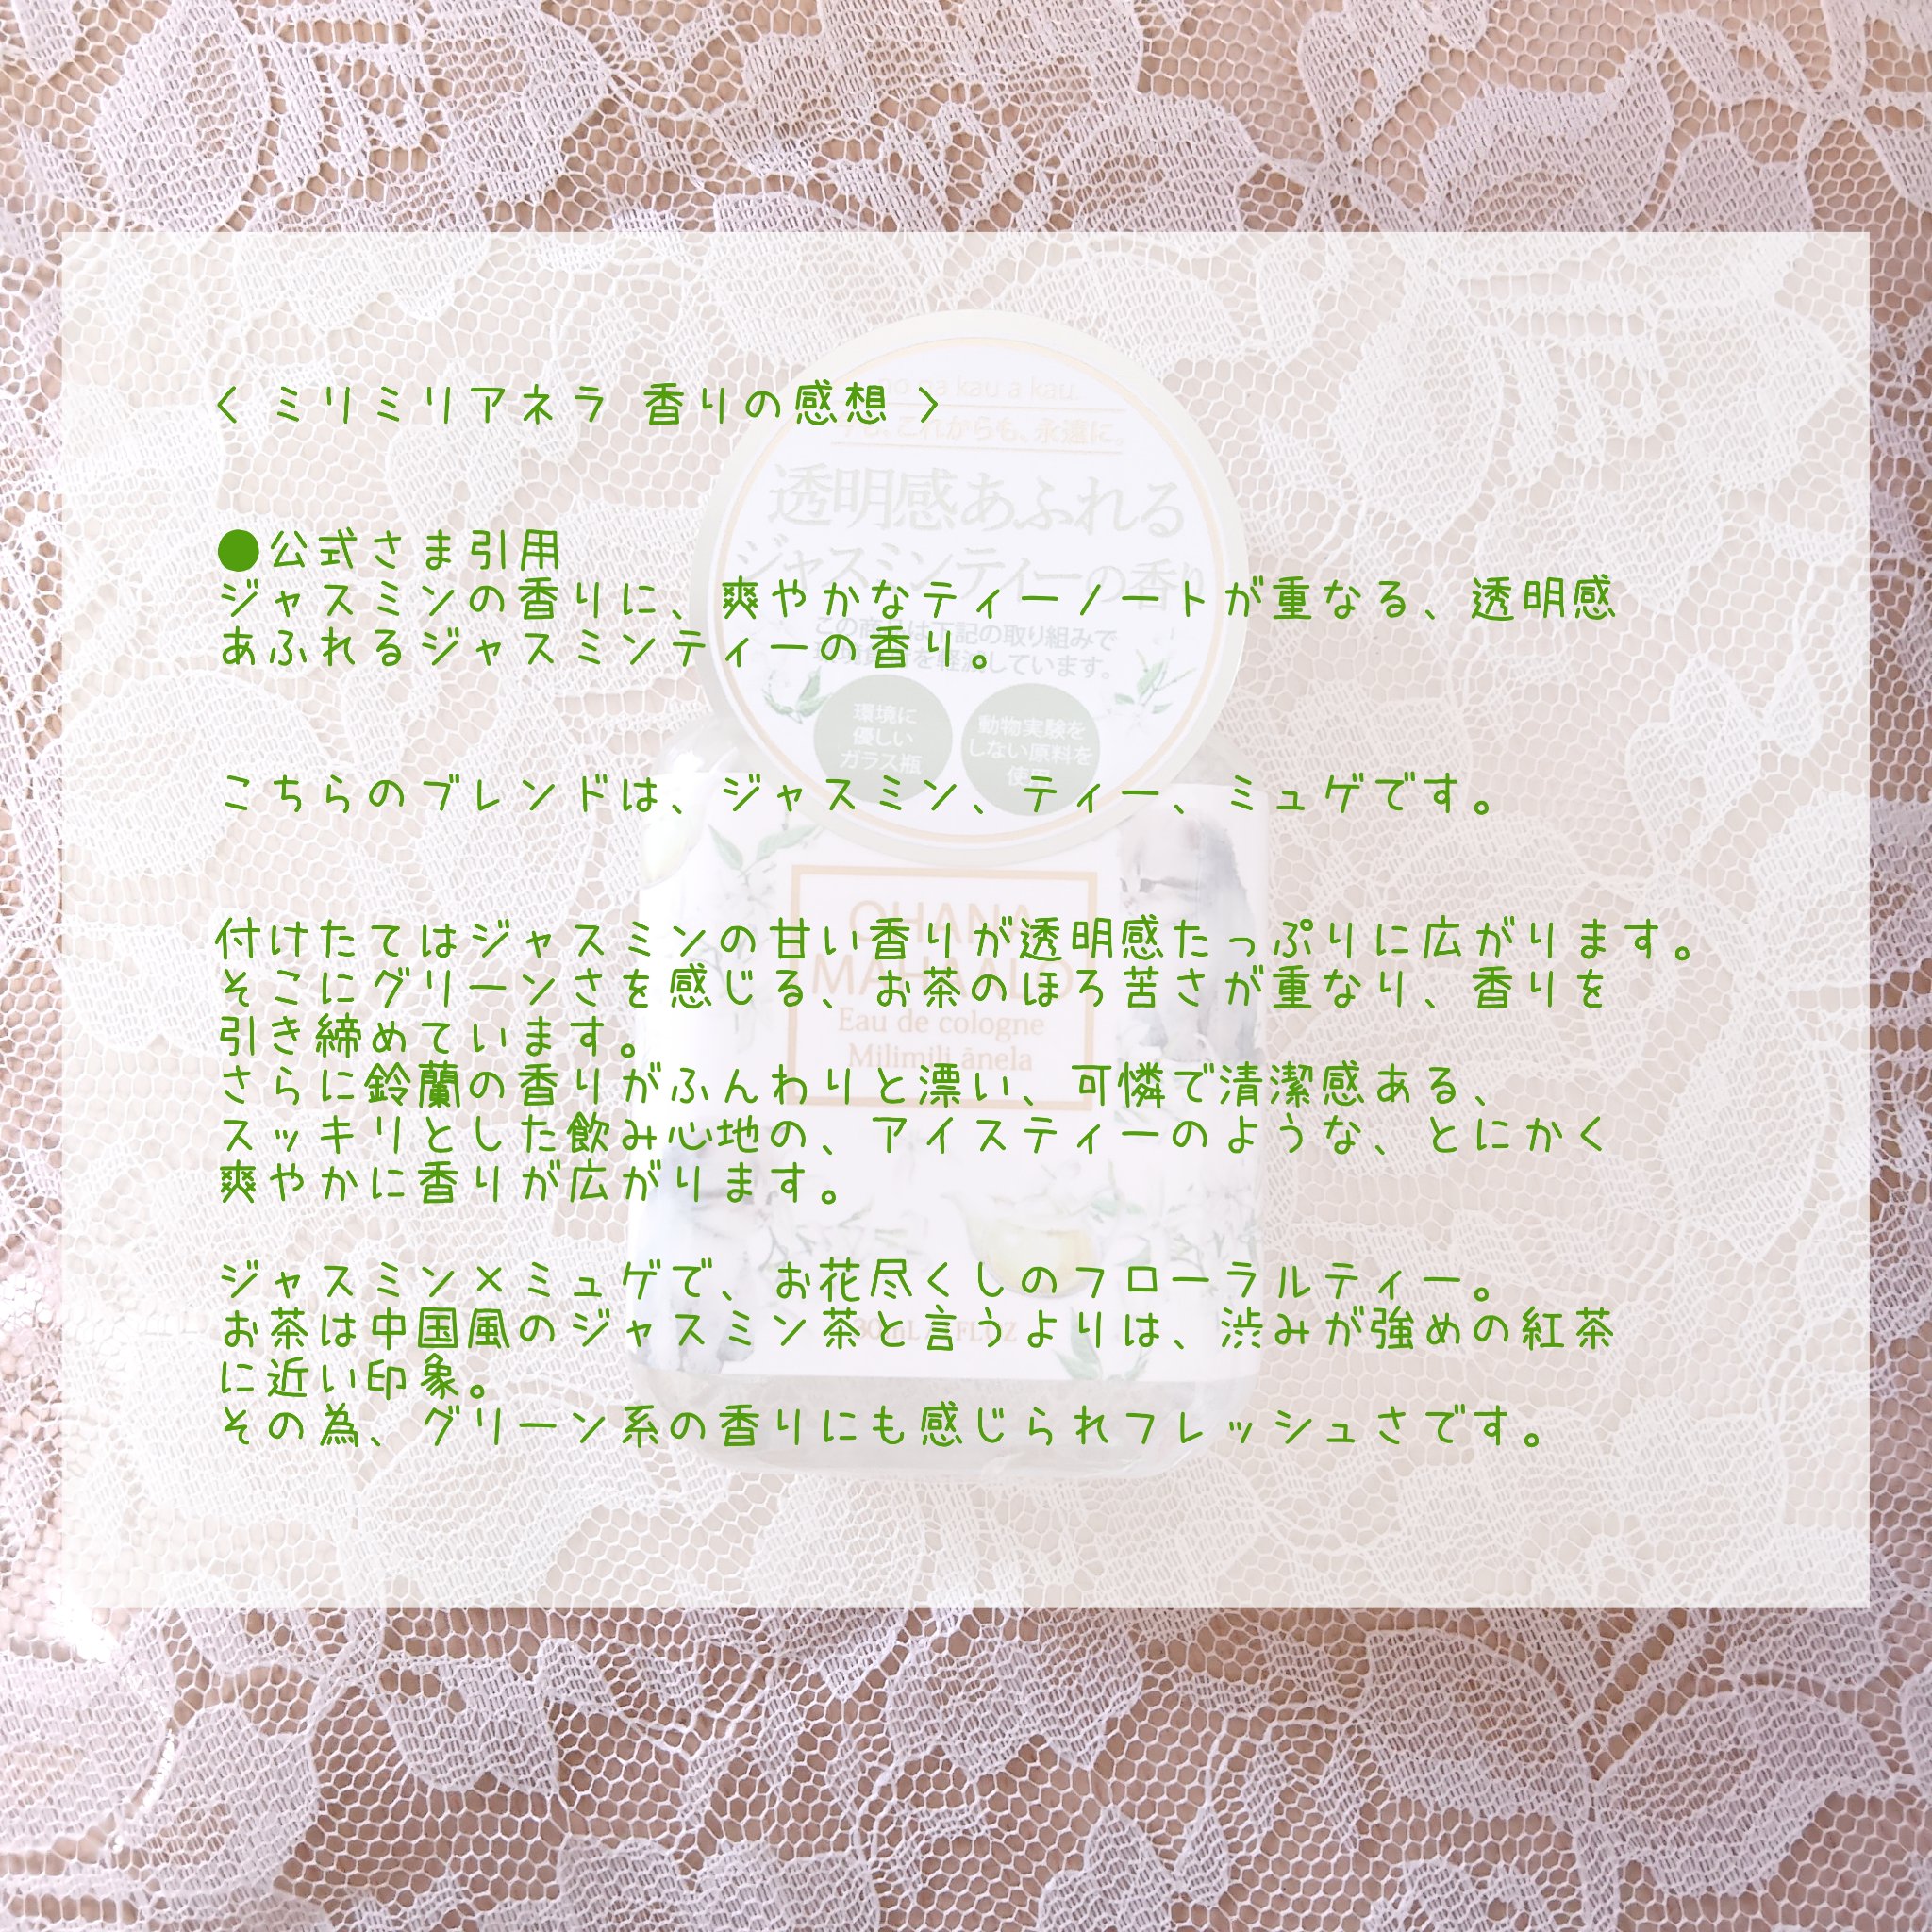 < ミリミリアネラ 香りの感想 >
●公式さま引用
ジャスミンの香りに、爽やかなティーノートが重なる、透明感
あふれるジャスミンティーの香り。
こちらのブレンドは、ジャスミン、ティー、ミュゲです。
付けたてはジャスミンの甘い香りが透明感たっぷりに広がります。
そこにグリーンさを感じる、お茶のほろ苦さが重なり、香りを
引き締めています。
さらに鈴蘭の香りがふんわりと漂い、可憐で清潔感ある、
スッキリとした飲み心地の、アイスティーのような、とにかく
爽やかに香りが広がります。
ジャスミン×ミュゲで、お花尽くしのフローラルティー。
お茶は中国風のジャスミン茶と言うよりは、渋みが強めの紅茶
に近い印象。
その為、グリーン系の香りにも感じられフレッシュさです。
透明感あふれる
ジャスミンティーの香り
環境に
優しい
ガラス瓶
動物実験を
しない原料を
OHANA
MAHAALO
Eau de cologne
Milimili ānela